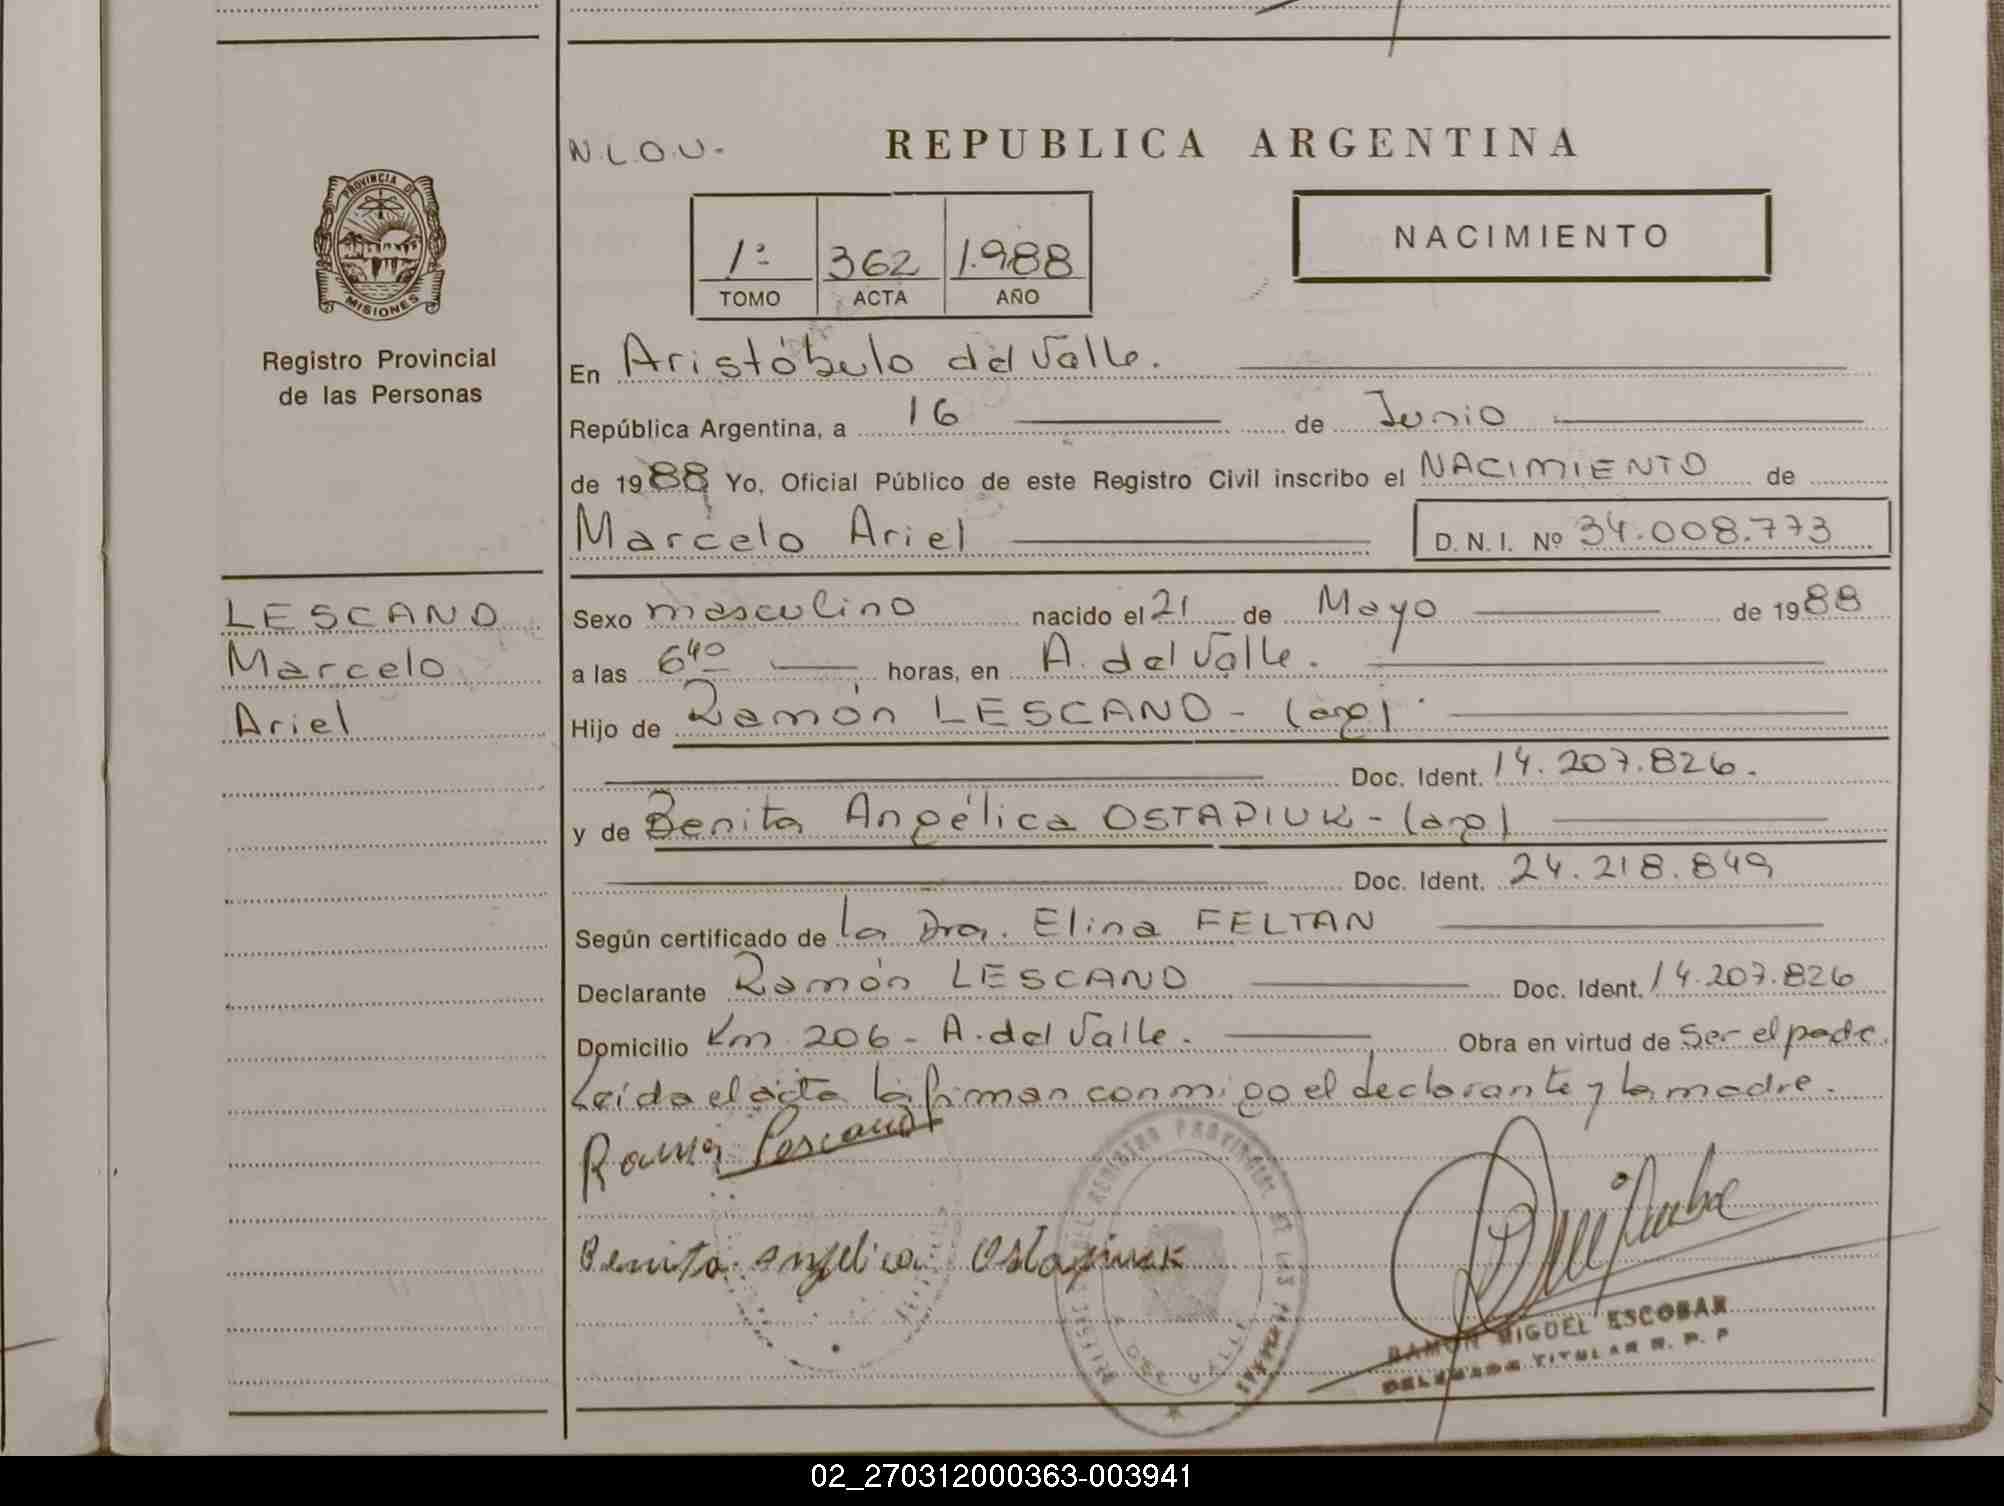 N.L.O.U.-
REPUBLICA ARGENTINA
PROVINCIA DE
MISIONES
Registro Provincial
de las Personas
1º 362 1.988
TOMO ACTA AÑO
NACIMIENTO
En Aristóbulo del Valle.
República Argentina, a 16 de Junio
de 1988 Yo, Oficial Público de este Registro Civil inscribo el NACIMIENTO de
Marcelo Ariel D. N. I. Nº 34.008.773
LESCANO
Marcelo
Ariel
Sexo masculino nacido el 21 de Mayo de 1988
a las 6 40 horas, en A. del Valle.
Hijo de Ramón LESCANO - (arg)
Doc. Ident. 14.207.826.
y de Benita Angélica OSTAPIUK - (arg)
Doc. Ident. 24.218.849
Según certificado de la Dra. Elina FELTAN
Declarante Ramón LESCANO Doc. Ident. 14.207.826
Domicilio Km 206 - A. del Valle. Obra en virtud de ser el padre.
Leída el acta la firman conmigo el declarante y la madre.
Ramon Lescano
Benita Angelica Ostapiuk
REGISTRO PROVINCIAL DE LAS PERSONAS
RAMON MIGUEL ESCOBAR
DELEGADO TITULAR R. P. P
02_270312000363-003941